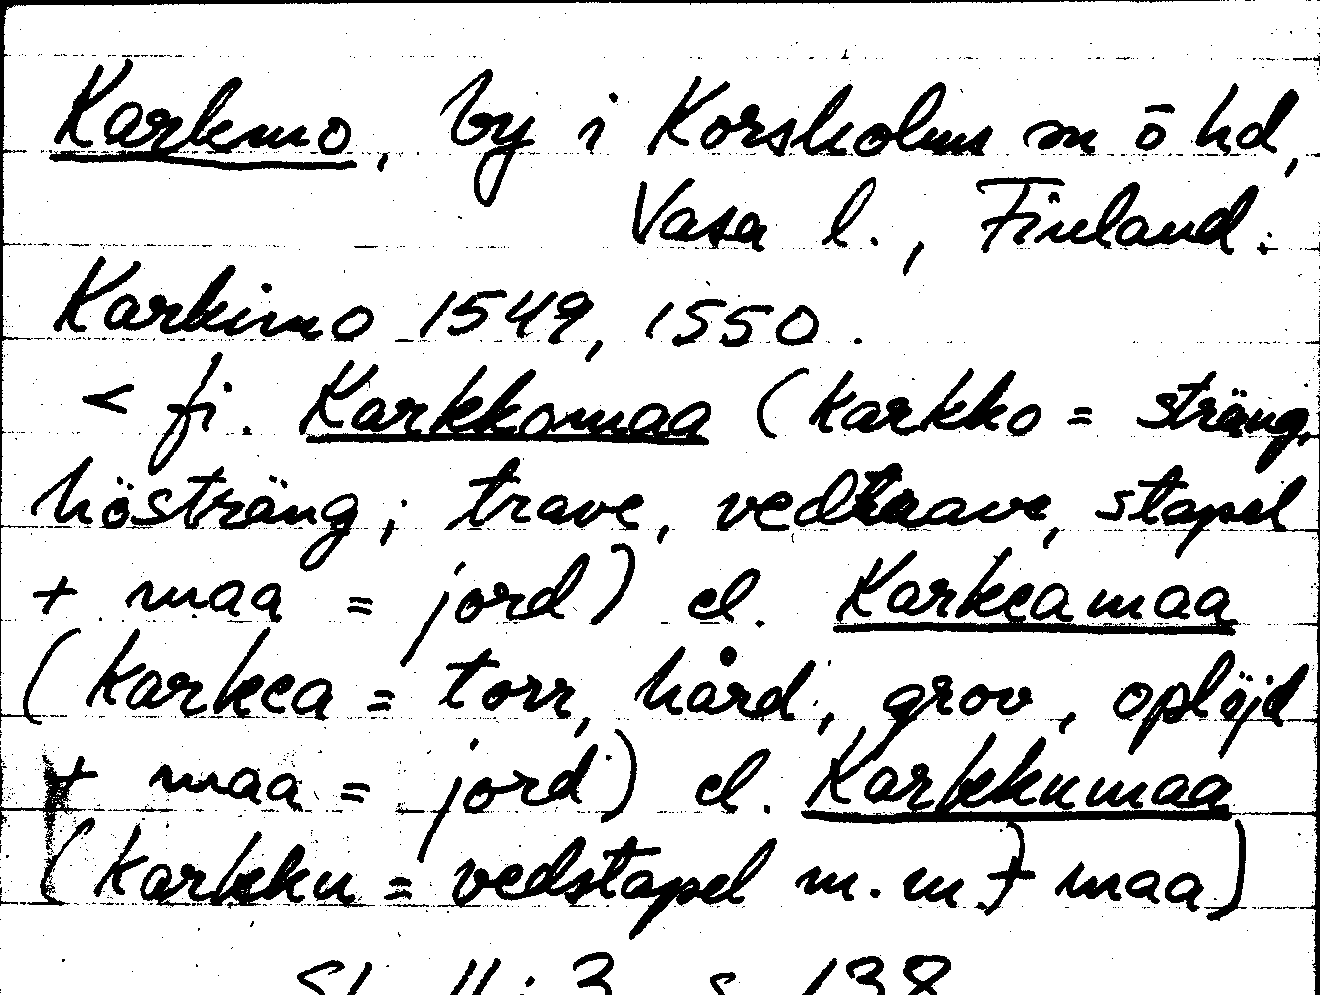 Karkmo, by i Korsholms m ō hd,
Vasa l., Finland.
Karkimo 1549, 1550.
< fi. Karkkomaa (karkko = sträng,
hösträng; trave, vedtrave, stapel
+ maa = jord) el. Karkeamaa
(karkea = torr, hård, grov, oplöjd
+ maa = jord) el. Karkkumaa
(karkku = vedstapel m.m.) + maa)
II:3 s. 138